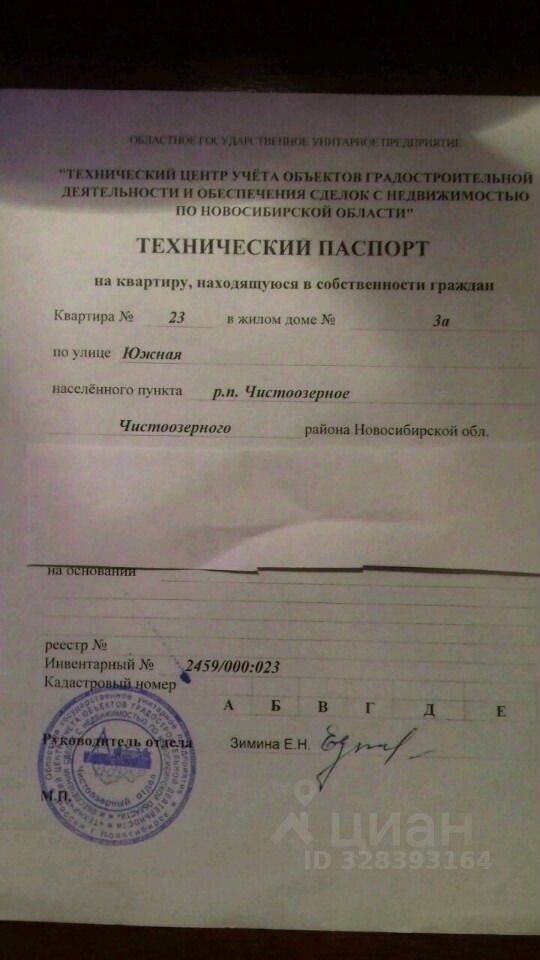 ОБЛАСТНОЕ ГОСУДАРСТВЕННОЕ УНИТАРНОЕ ПРЕДПРИЯТИЕ
"ТЕХНИЧЕСКИЙ ЦЕНТР УЧЁТА ОБЪЕКТОВ ГРАДОСТРОИТЕЛЬНОЙ
ДЕЯТЕЛЬНОСТИ И ОБЕСПЕЧЕНИЯ СДЕЛОК С НЕДВИЖИМОСТЬЮ
ПО НОВОСИБИРСКОЙ ОБЛАСТИ"
ТЕХНИЧЕСКИЙ ПАСПОРТ
на квартиру, находящуюся в собственности граждан
Квартира № 23 в жилом доме № 3а
по улице Южная
населённого пункта р.п. Чистоозерное
Чистоозерного района Новосибирской обл.
на основании
реестр №
Инвентарный № 2459/000:023
Кадастровый номер
А Б В Г Д Е
Руководитель отдела Зимина Е.Н.
Чистоозерный отдел
М.П.
циан
ID 328393164